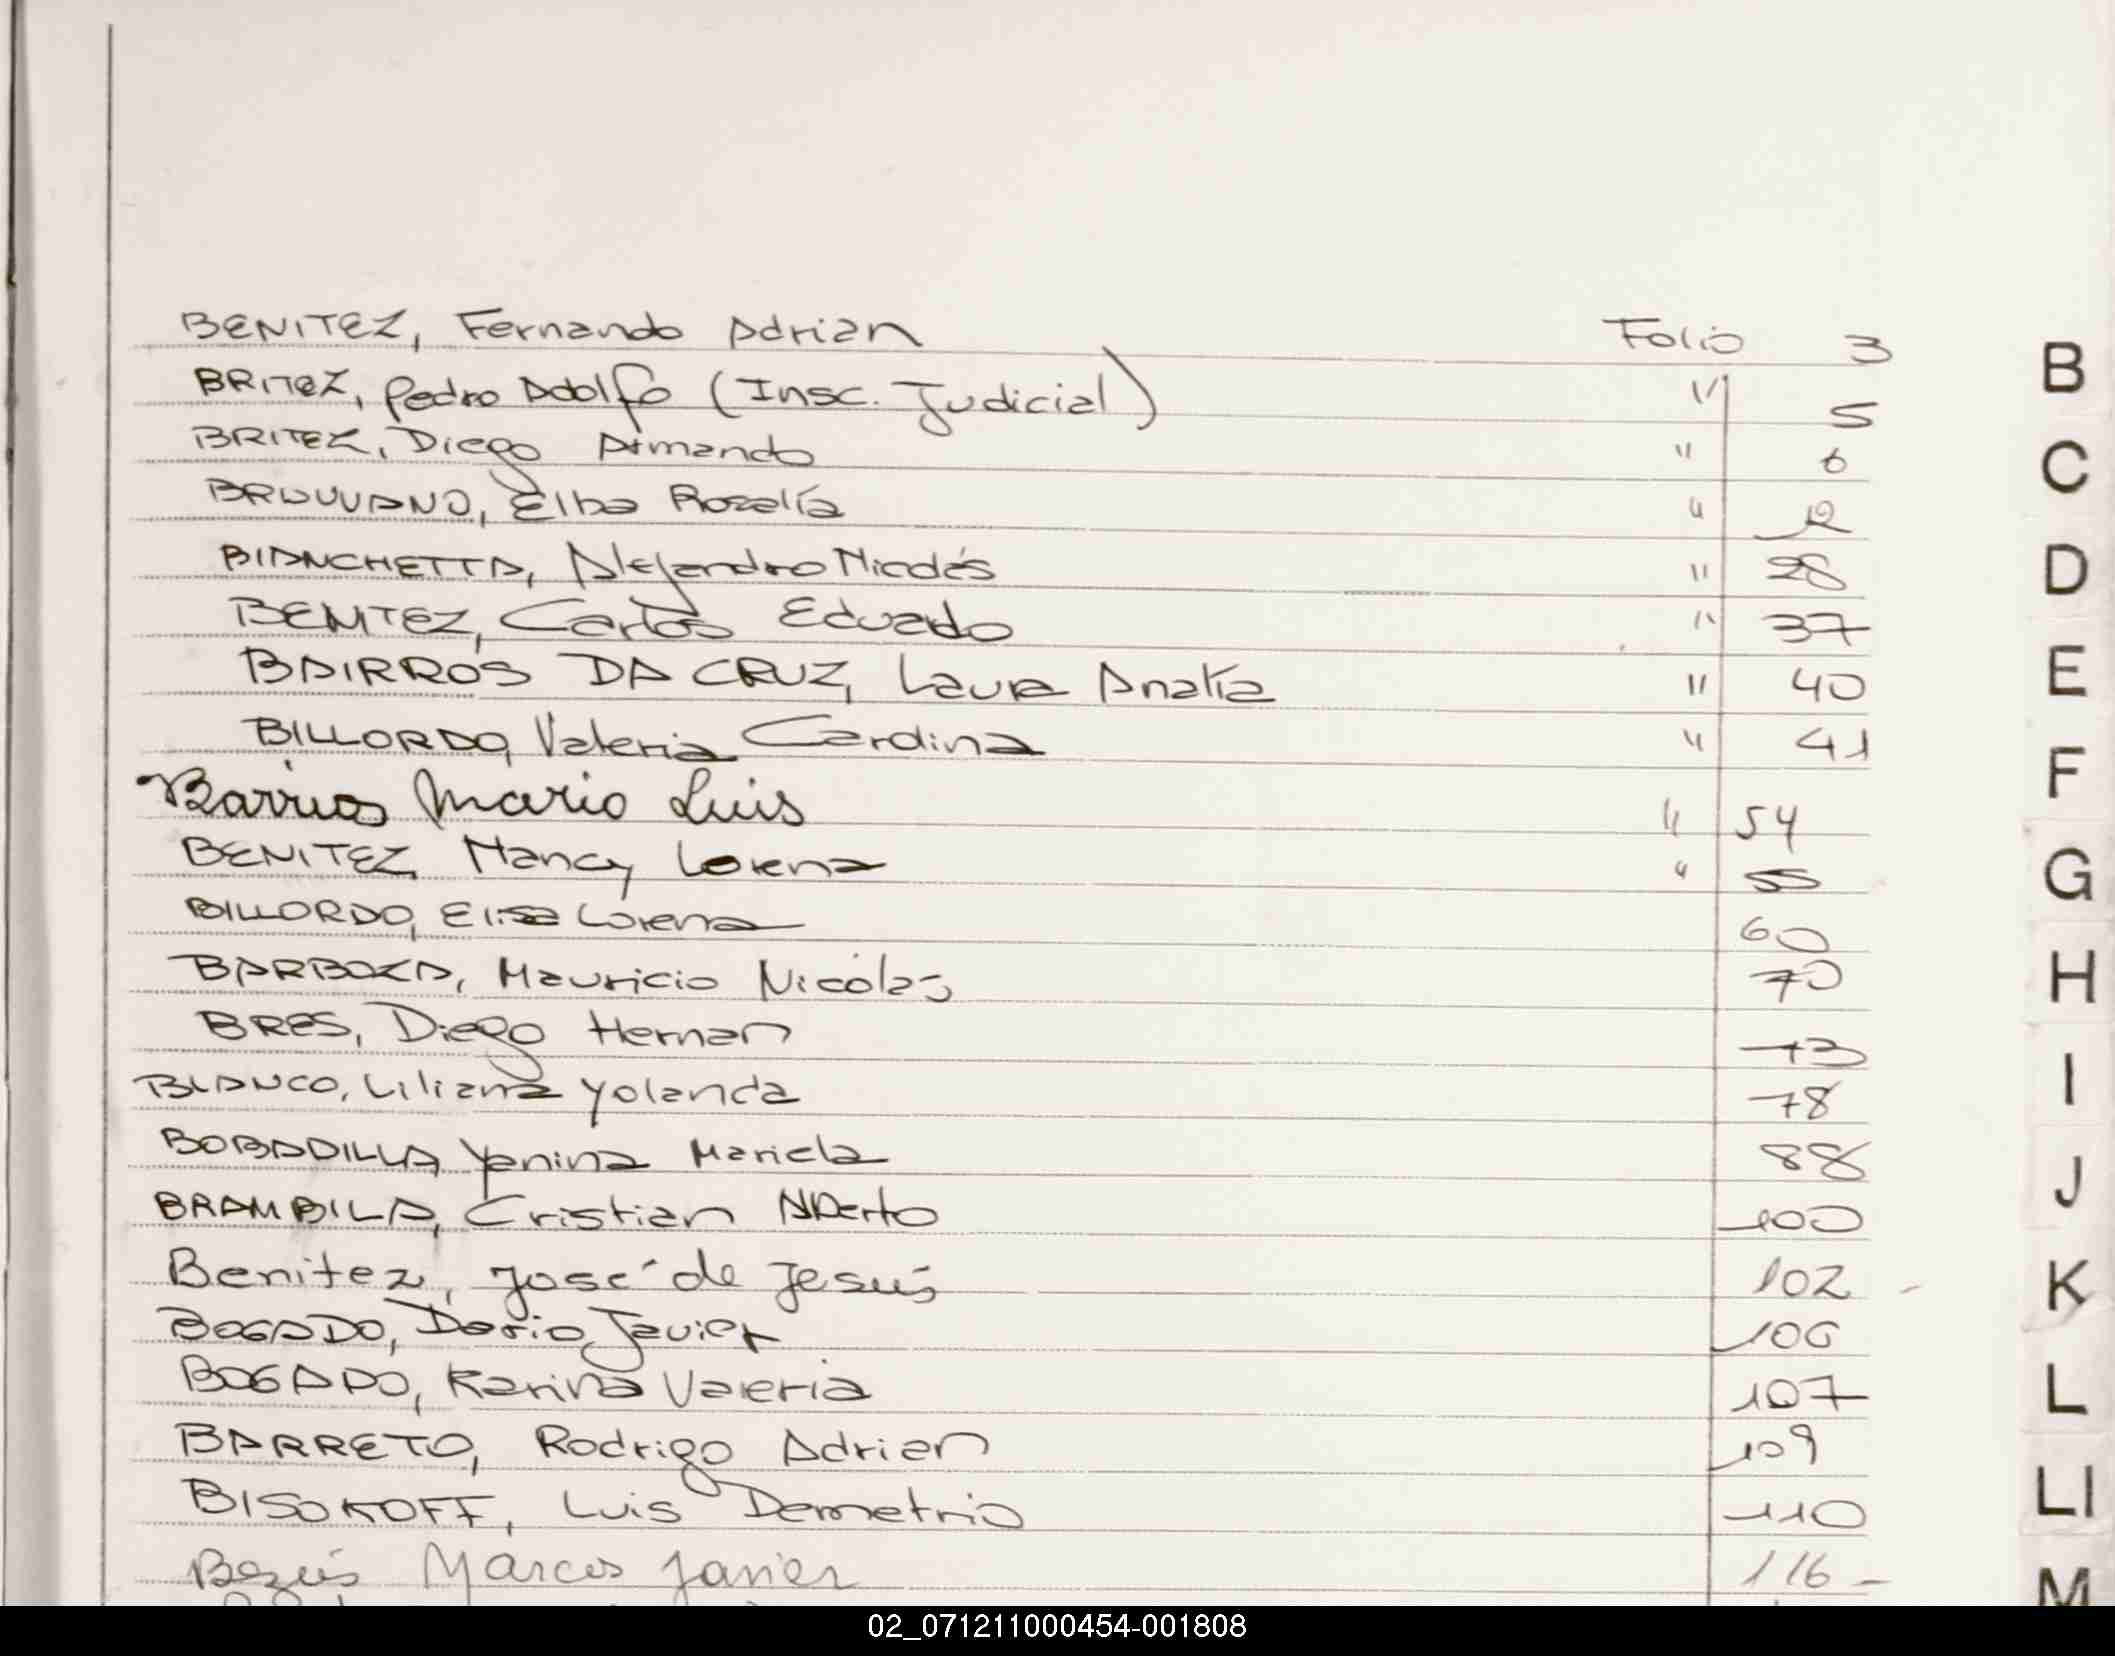 BENITEZ, Fernando Adrian Folio 3
BRITEZ, Pedro Adolfo (Insc. Judicial) " 5
BRITEZ, Diego Armando " 6
Elba Rosalía " 12
BIANCHETTA, Alejandro Nicolás " 28
BENITEZ, Carlos Eduardo " 37
BAIRROS DA CRUZ, Laura Analía " 40
BILLORDO, Valeria Carolina " 41
Barrios Mario Luis " 54
BENITEZ, Nancy Lorena " 55
BILLORDO, Elisa Lorena 60
BARBOZA, Mauricio Nicólas 70
BRES, Diego Hernan 73
BLANCO, Liliana Yolanda 78
BOBADILLA, Yanina Mariela 88
BRAMBILA, Cristian Alberto 100
Benitez, José de Jesús 102
BOGADO, Dario Javier 106
BOGADO, Karina Valeria 107
BARRETO, Rodrigo Adrian 109
BISOKOFF, Luis Demetrio 110
Bezús Marcos Javier 116
B
C
D
E
F
G
H
I
J
K
L
Ll
M
02_071211000454-001808